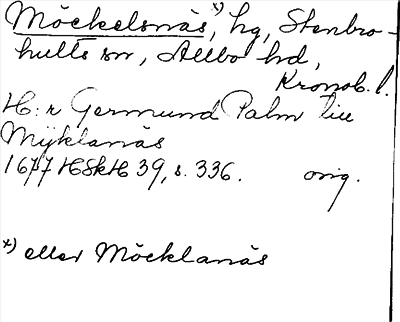 Möckelsnäs x), hg, Stenbro-
hults sn, Allbo hd,
Kronob. l.
H: r Germund Palm till
Myklanäs
1677 HSkH 39, s. 336. orig.
x) eller Möcklanäs